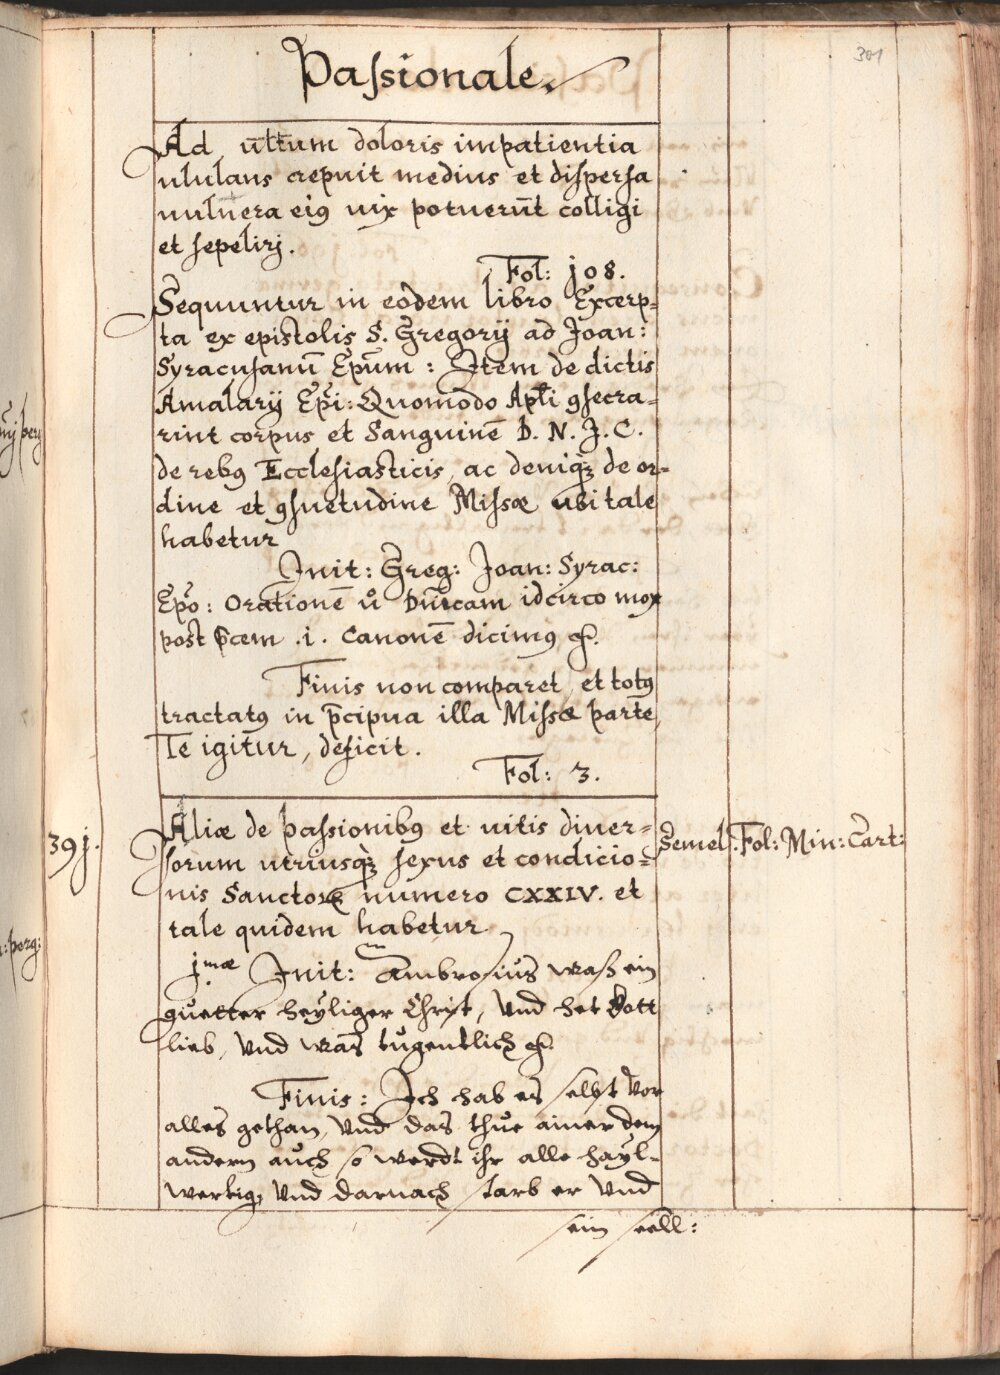 301
Paſsionale.
Ad ultīum doloris impatientia
ululans crepuit medius et diſperſa
uulnera eiꝰ uix potuerūt colligi
et ſepelirj.
Fol: j08.
Sequuntur in eodem libro Excerp=
ta ex epistolis S. Gregorij ad Joan:
Syracuſanū Ep̄um: Item de dictis
Amalarij Ep̄i: Quomodo Apl̄i ꝯſecra=
rint corpus et Sanguinē D. N. J. C.
de rebꝰ Eccleſiasticis, ac deniq̨ꝫ de or=
dine et ꝯſuetudine Miſsæ ubi tale
habetur
Init: Greg: Joan: Syrac:
Ep̄o: Orationē ů Dn̄icam idcirco mox
post p̄cem .i. Canonē dicimꝰ ꝛc.
Finis non comparet, et totꝰ
tractatꝰ in p̄cipua illa Miſsæ parte,
Te igitur, deficit.
Fol: 3.
39j.
Aliæ de paſsionibꝰ et uitis diuer=
ſorum utriusq̨ꝫ ſexus et condicio=
nis Sanctoꝝ numero CXXIV. et
tale quidem habetur
Semel.
Fol: Min: Cart:
j.mæ Init: Ambroſius waß ein
guetter heyliger Chriſt, Vnd het Gott
lieb, Vnd was tugentlich ꝛc.
Finis: Ich hab es ſelbſt Vor
alles gethan, Vnd das thue ainer dem
andern auch ſo werdt ihr alle hayl=
wertig, Vnd darnach ſtarb er Vnd
ſein ſeell:
: perg: